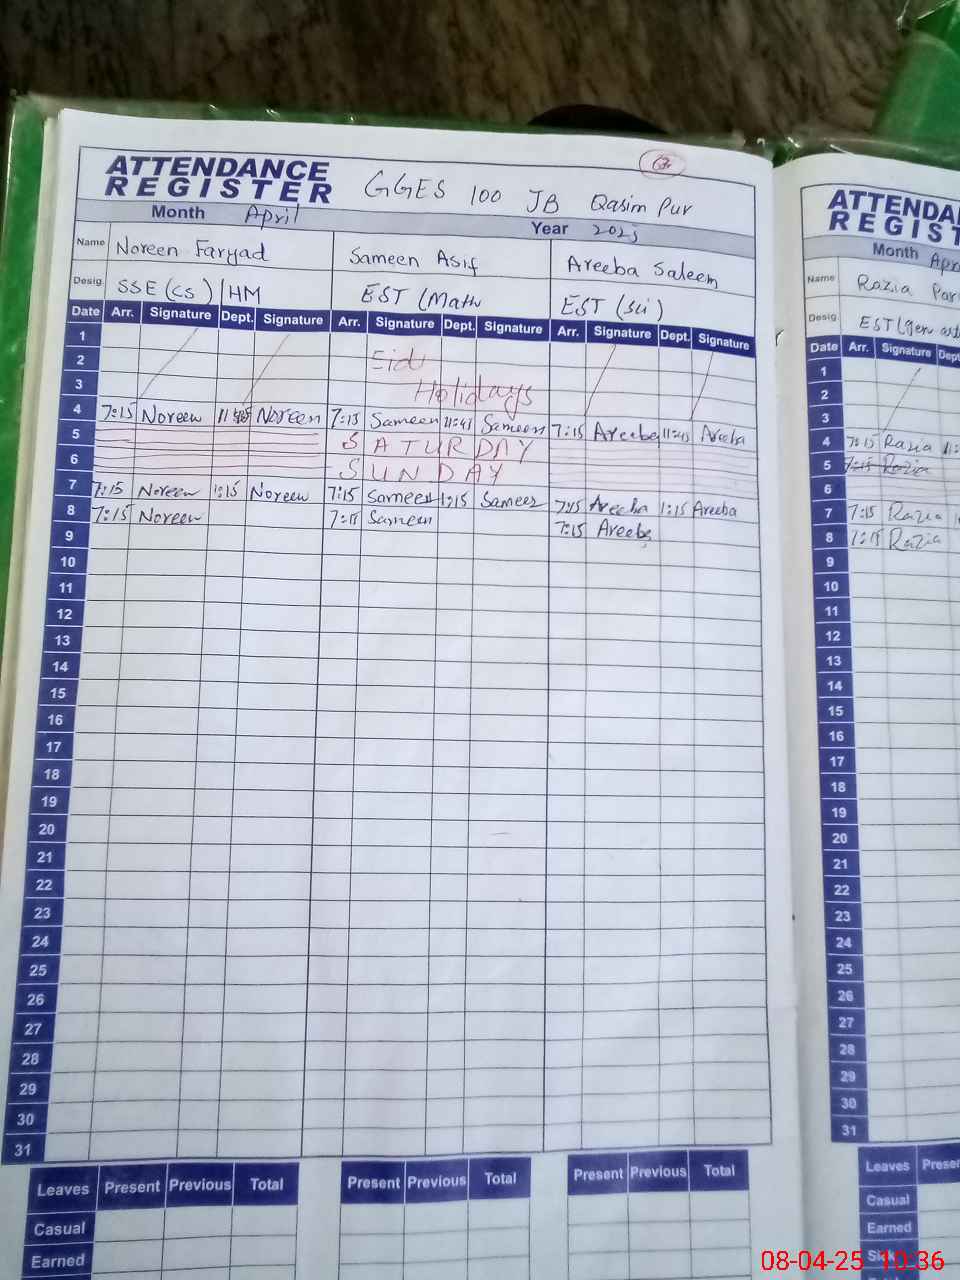 ATTENDANCE REGISTER GGES 100 JB Qasim Pur
Month April Year 2025
Name Noreen Faryad Sameen Asif Areeba Saleem
Desig. SSE (CS) / HM EST (Math EST (Sci)
Date Arr. Signature Dept. Signature Arr. Signature Dept. Signature Arr. Signature Dept. Signature
1
2 Eid
3 Holidays
4 7:15 Noreen Noreen 7:15 Sameen 11:45 Sameen 7:15 Areeba 11:45 Areeba
5 SATURDAY
6 SUNDAY
7 7:15 Noreen 1:15 Noreen 7:15 Sameen 1:15 Sameen 7:15 Areeba 1:15 Areeba
8 7:15 Noreen 7:15 Sameen 7:15 Areeba
9
10
11
12
13
14
15
16
17
18
19
20
21
22
23
24
25
26
27
28
29
30
31
Leaves Present Previous Total Present Previous Total Present Previous Total
Casual
Earned
ATTENDA
REGIST
Month Apr
Name Razia Par
Desig.
Date Arr. Signature Dept
1
2
3
4 7:15 Razia 11:
5 7:15 Razia
6
7 7:15 Razia
8 7:15 Razia
9
10
11
12
13
14
15
16
17
18
19
20
21
22
23
24
25
26
27
28
29
30
31
Leaves Presen
Casual
Earned
08-04-25 10:36